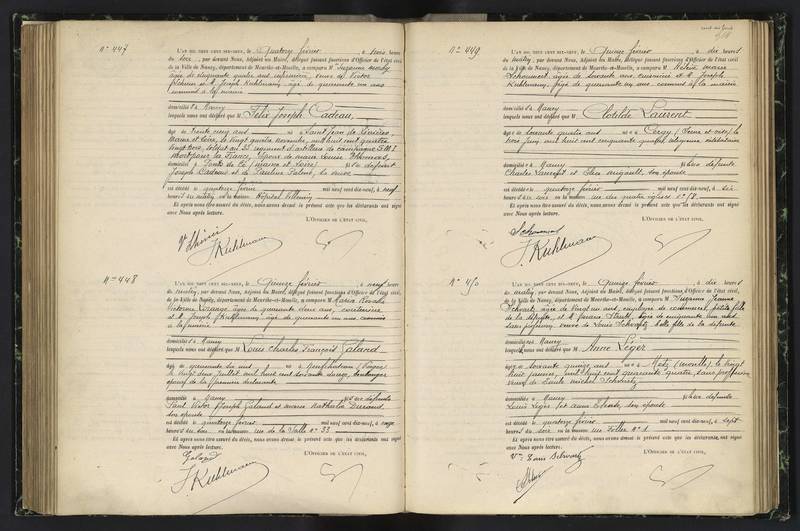 N° 447
L'AN MIL NEUF CENT DIX-NEUF, le Quatorze février, à trois heures
du soir, par devant Nous, Adjoint au Maire, délégué faisant fonctions d'Officier de l'état civil
de la Ville de Nancy, département de Meurthe-et-Moselle, a comparu M Suzanne
âgée de cinquante quatre ans infirmière, veuve de Victor
et M Joseph Kuhlmann, âgé de quarante un ans
domicilié à Nancy
lequels nous ont déclaré que M Félix Joseph Cadeau,
âgé de trente cinq ans né à Saint Jean de
Maine et Loire, le vingt quatre novembre, mil huit cent quatre
vingt trois, soldat au 33 régiment d'artillerie de campagne
Mort pour la France, époux de Marie Louise
domicilié à Ponts de Cé (Maine et Loire) fils de défunt
Joseph Cadeau et de Pauline Talout, sa veuve
est décédé le quatorze février mil neuf cent dix-neuf, à neuf
heures du matin, en la maison Hôpital Villemin
Et après nous être assuré du décès, nous avons dressé le présent acte que les déclarants ont signé
avec Nous après lecture.
L'OFFICIER DE L'ÉTAT CIVIL,
J Kuhlmann
N° 448
L'AN MIL NEUF CENT DIX-NEUF, le Quinze février, à neuf heures
du matin, par devant Nous, Adjoint au Maire, délégué faisant fonctions d'Officier de l'état civil,
de la Ville de Nancy, département de Meurthe-et-Moselle, a comparu M Maria Rosalie
Victorine âgée de quarante deux ans, couturière
et M Joseph Kuhlmann âgé de quarante un ans, commis
à la mairie
domiciliés à Nancy
lequels nous ont déclaré que M Louis Charles François Galand
âgé de quarante six ans né à Neufchâteau (Vosges)
le vingt deux juillet mil huit cent soixante douze, boulanger
époux de la première déclarante
domicilié à Nancy fils de défunts
Paul Victor Joseph Galand et Marie Nathalie Durand,
son épouse
est décédé le quatorze février mil neuf cent dix-neuf, à onze
heures du soir, en la maison rue de la Salle n° 33
Et après nous être assuré du décès, nous avons dressé le présent acte que les déclarants ont signé
avec Nous après lecture.
L'OFFICIER DE L'ÉTAT CIVIL,
Galand
J Kuhlmann
N° 449
L'AN MIL NEUF CENT DIX-NEUF, le Quinze février, à dix heures
du matin, par devant Nous, Adjoint au Maire, délégué faisant fonctions d'Officier de l'état civil,
de la Ville de Nancy, département de Meurthe-et-Moselle, a comparu M Marie
âgée de soixante ans, cuisinière et M Joseph
Kuhlmann, âgé de quarante un ans commis à la mairie
domiciliés à Nancy
lequels nous ont déclaré que M Clotilde Laurent
âgée de soixante quatre ans née à Cergy (Seine et Oise) le
trois juin mil huit cent cinquante quatre, célibataire
domiciliée à Nancy fille de défunts
Charles Laurent et son épouse
est décédée le quatorze février mil neuf cent dix-neuf, à six
heures du soir en la maison rue des quatre églises n° 58
Et après nous être assuré du décès, nous avons dressé le présent acte que les déclarants ont signé
avec Nous après lecture.
L'OFFICIER DE L'ÉTAT CIVIL,
J Kuhlmann
N° 450
L'AN MIL NEUF CENT DIX-NEUF, le Quinze février, à dix heures
du matin, par devant Nous, Adjoint au Maire, délégué faisant fonctions d'Officier de l'état civil,
de la Ville de Nancy, département de Meurthe-et-Moselle, a comparu M Suzanne Jeanne
Schwartz âgée de vingt un ans, employée de commerce, petite fille
de la défunte et M âgée de cinquante un ans
sans profession, veuve de Louis Schwartz belle fille de la défunte
domiciliés à Nancy
lequels nous ont déclaré que M Anne Léger
âgée de soixante quinze ans née à Metz (Moselle) le vingt
huit janvier, mil huit cent quarante quatre, sans profession
veuve de Louis Michel Schwartz
domiciliée à Nancy fille de défunts
Louis Léger et Anne son épouse
est décédée le quatorze février mil neuf cent dix-neuf, à sept
heures du soir en la maison rue n° 1
Et après nous être assuré du décès, nous avons dressé le présent acte que les déclarants ont signé
avec Nous après lecture.
L'OFFICIER DE L'ÉTAT CIVIL,
Vve Louis Schwartz